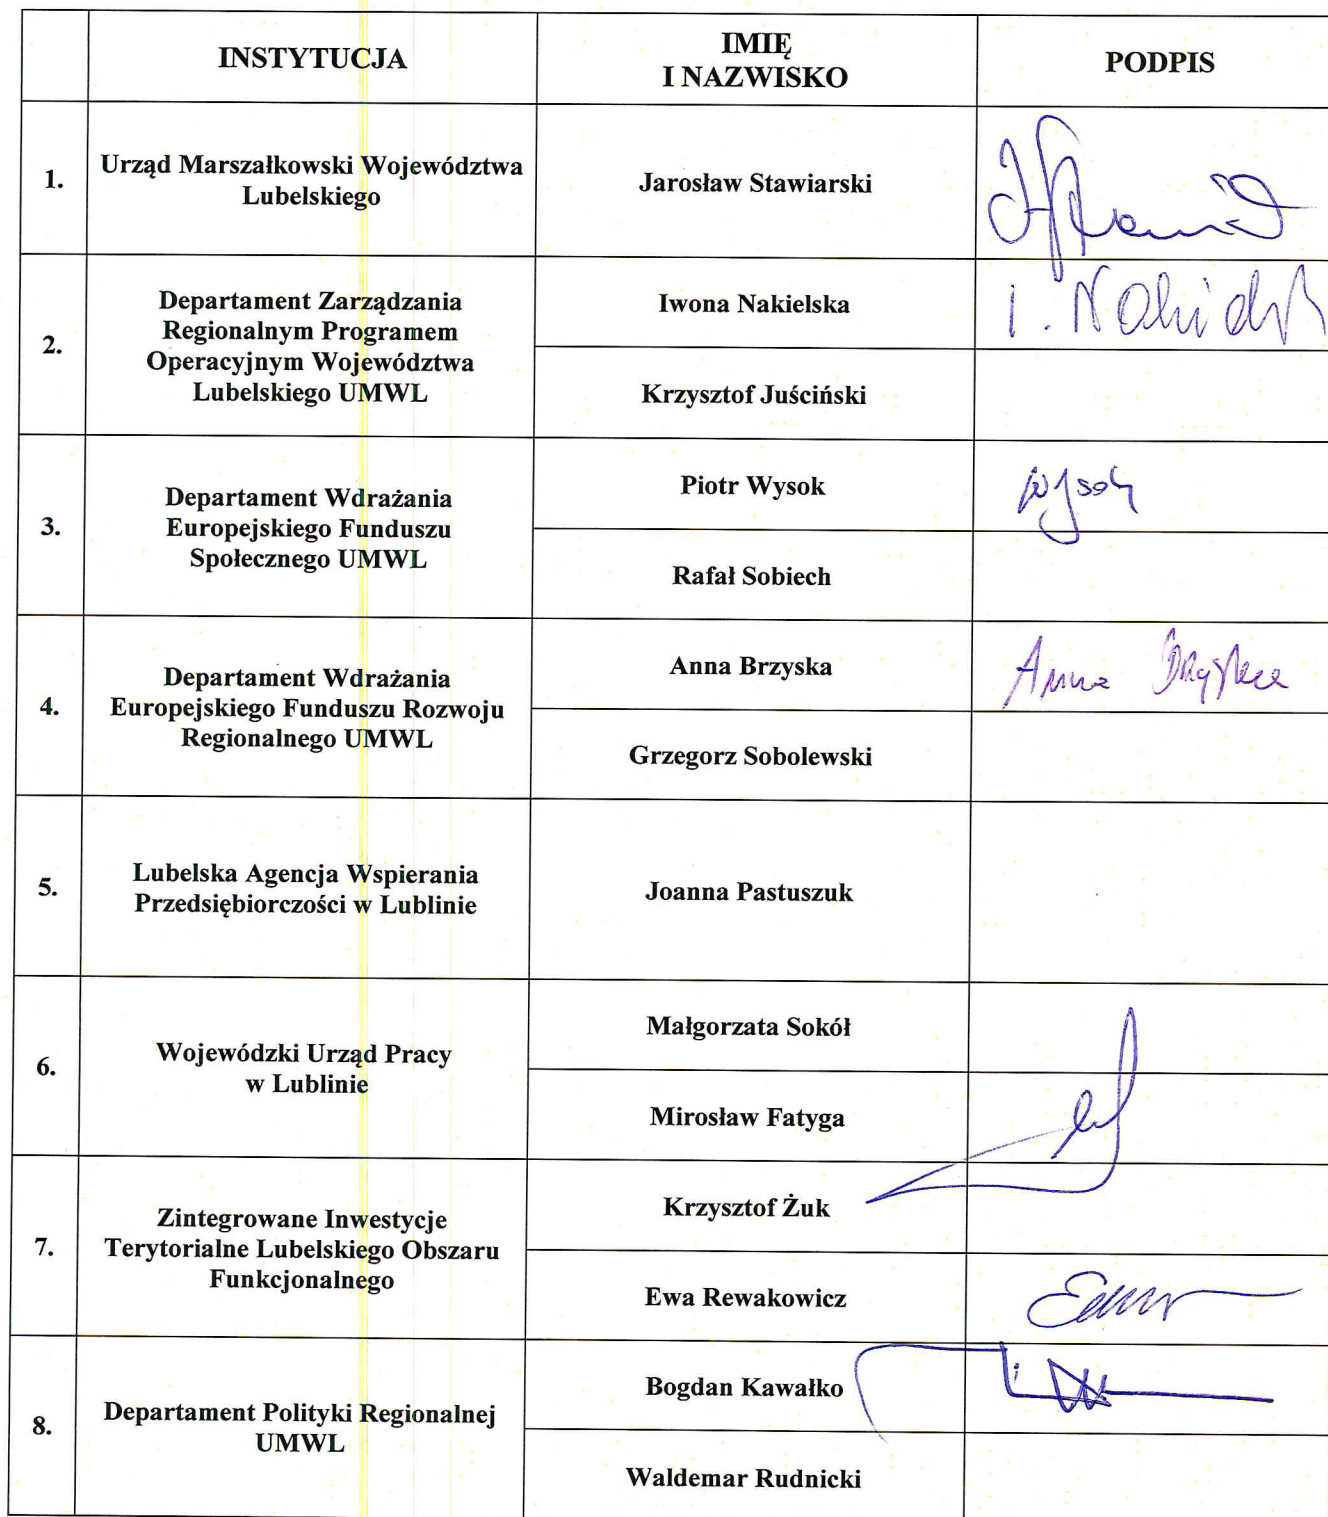 INSTYTUCJA
IMIĘ
I NAZWISKO
PODPIS
1.
Urząd Marszałkowski Województwa
Lubelskiego
Jarosław Stawiarski
2.
Departament Zarządzania
Regionalnym Programem
Operacyjnym Województwa
Lubelskiego UMWL
Iwona Nakielska
Krzysztof Juściński
3.
Departament Wdrażania
Europejskiego Funduszu
Społecznego UMWL
Piotr Wysok
Rafał Sobiech
4.
Departament Wdrażania
Europejskiego Funduszu Rozwoju
Regionalnego UMWL
Anna Brzyska
Anna Brzyska
Grzegorz Sobolewski
5.
Lubelska Agencja Wspierania
Przedsiębiorczości w Lublinie
Joanna Pastuszuk
6.
Wojewódzki Urząd Pracy
w Lublinie
Małgorzata Sokół
Mirosław Fatyga
7.
Zintegrowane Inwestycje
Terytorialne Lubelskiego Obszaru
Funkcjonalnego
Krzysztof Żuk
Ewa Rewakowicz
8.
Departament Polityki Regionalnej
UMWL
Bogdan Kawałko
Waldemar Rudnicki